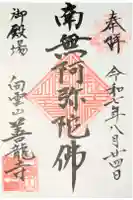 奉拝
令和七年八月廿四日
南無阿弥陀佛
御殿場
白雲山善龍寺